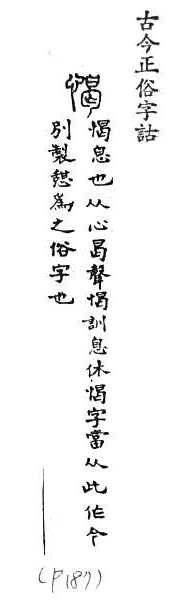 古今正俗字詁
愒
愒息也从心曷聲愒訓息休愒字當从此作今
別製憩為之俗字也
(P187)